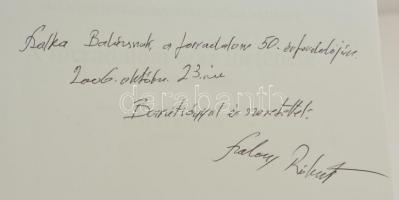 Balázsnak, a forradalom 50. évfordulójára.
2006. október 23-án
Barátsággal és szeretettel:
Szalay Róbert
darabanth